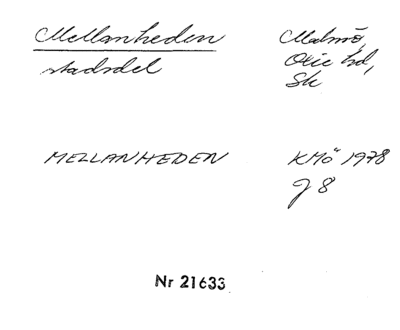 Mellanheden Malmö,
stadsdel Oxie hd,
Sk
MELLANHEDEN KMö 1978
J 8
Nr 21633